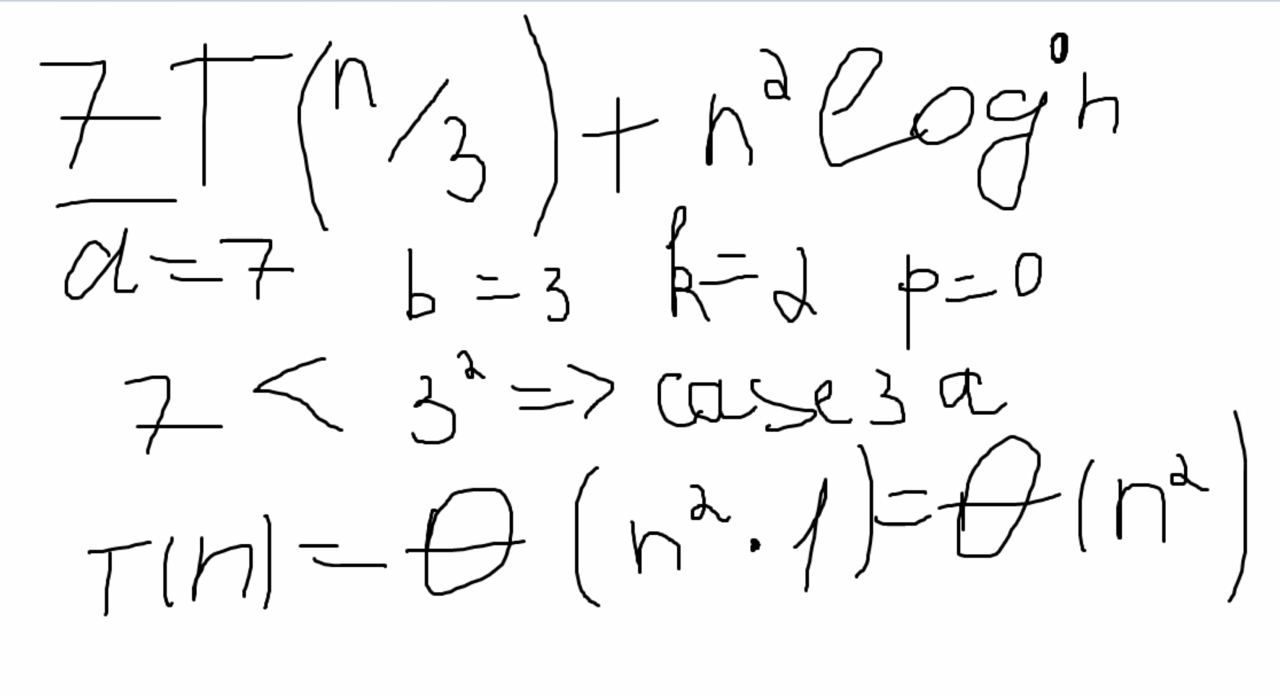 7T(n/3) + n² log⁰n
a = 7 b = 3 k = 2 p = 0
7 < 3² => case 3 a
T(n) = θ (n² · 1) = θ (n²)